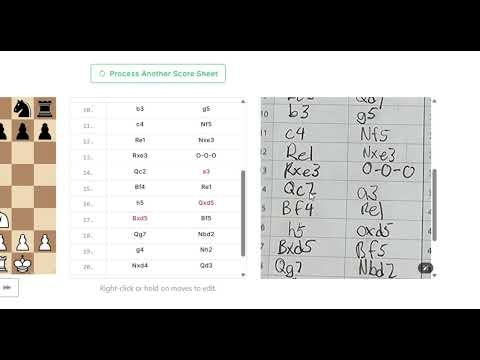 Process Another Score Sheet
10. b3 g5
11. c4 Nf5
12. Re1 Nxe3
13. Rxe3 O-O-O
14. Qc2 a3
15. Bf4 Re1
16. h5 Qxd5
17. Bxd5 Bf5
18. Qg7 Nbd2
19. g4 Nh2
20. Nxd4 Qd3
Right-click or hold on moves to edit.
10 b3 g5
11 c4 Nf5
12 Re1 Nxe3
3 Rxe3 O-O-O
4 Qc2 a3
5 Bf4 Re1
h5 axd5
Bxd5 Bf5
Qg7 Nbd2